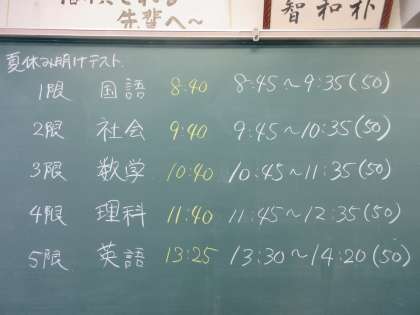 先輩へ〜
智和朴
夏休み明けテスト
1限 国語 8:40 8:45〜9:35(50)
2限 社会 9:40 9:45〜10:35(50)
3限 数学 10:40 10:45〜11:35(50)
4限 理科 11:40 11:45〜12:35(50)
5限 英語 13:25 13:30〜14:20(50)